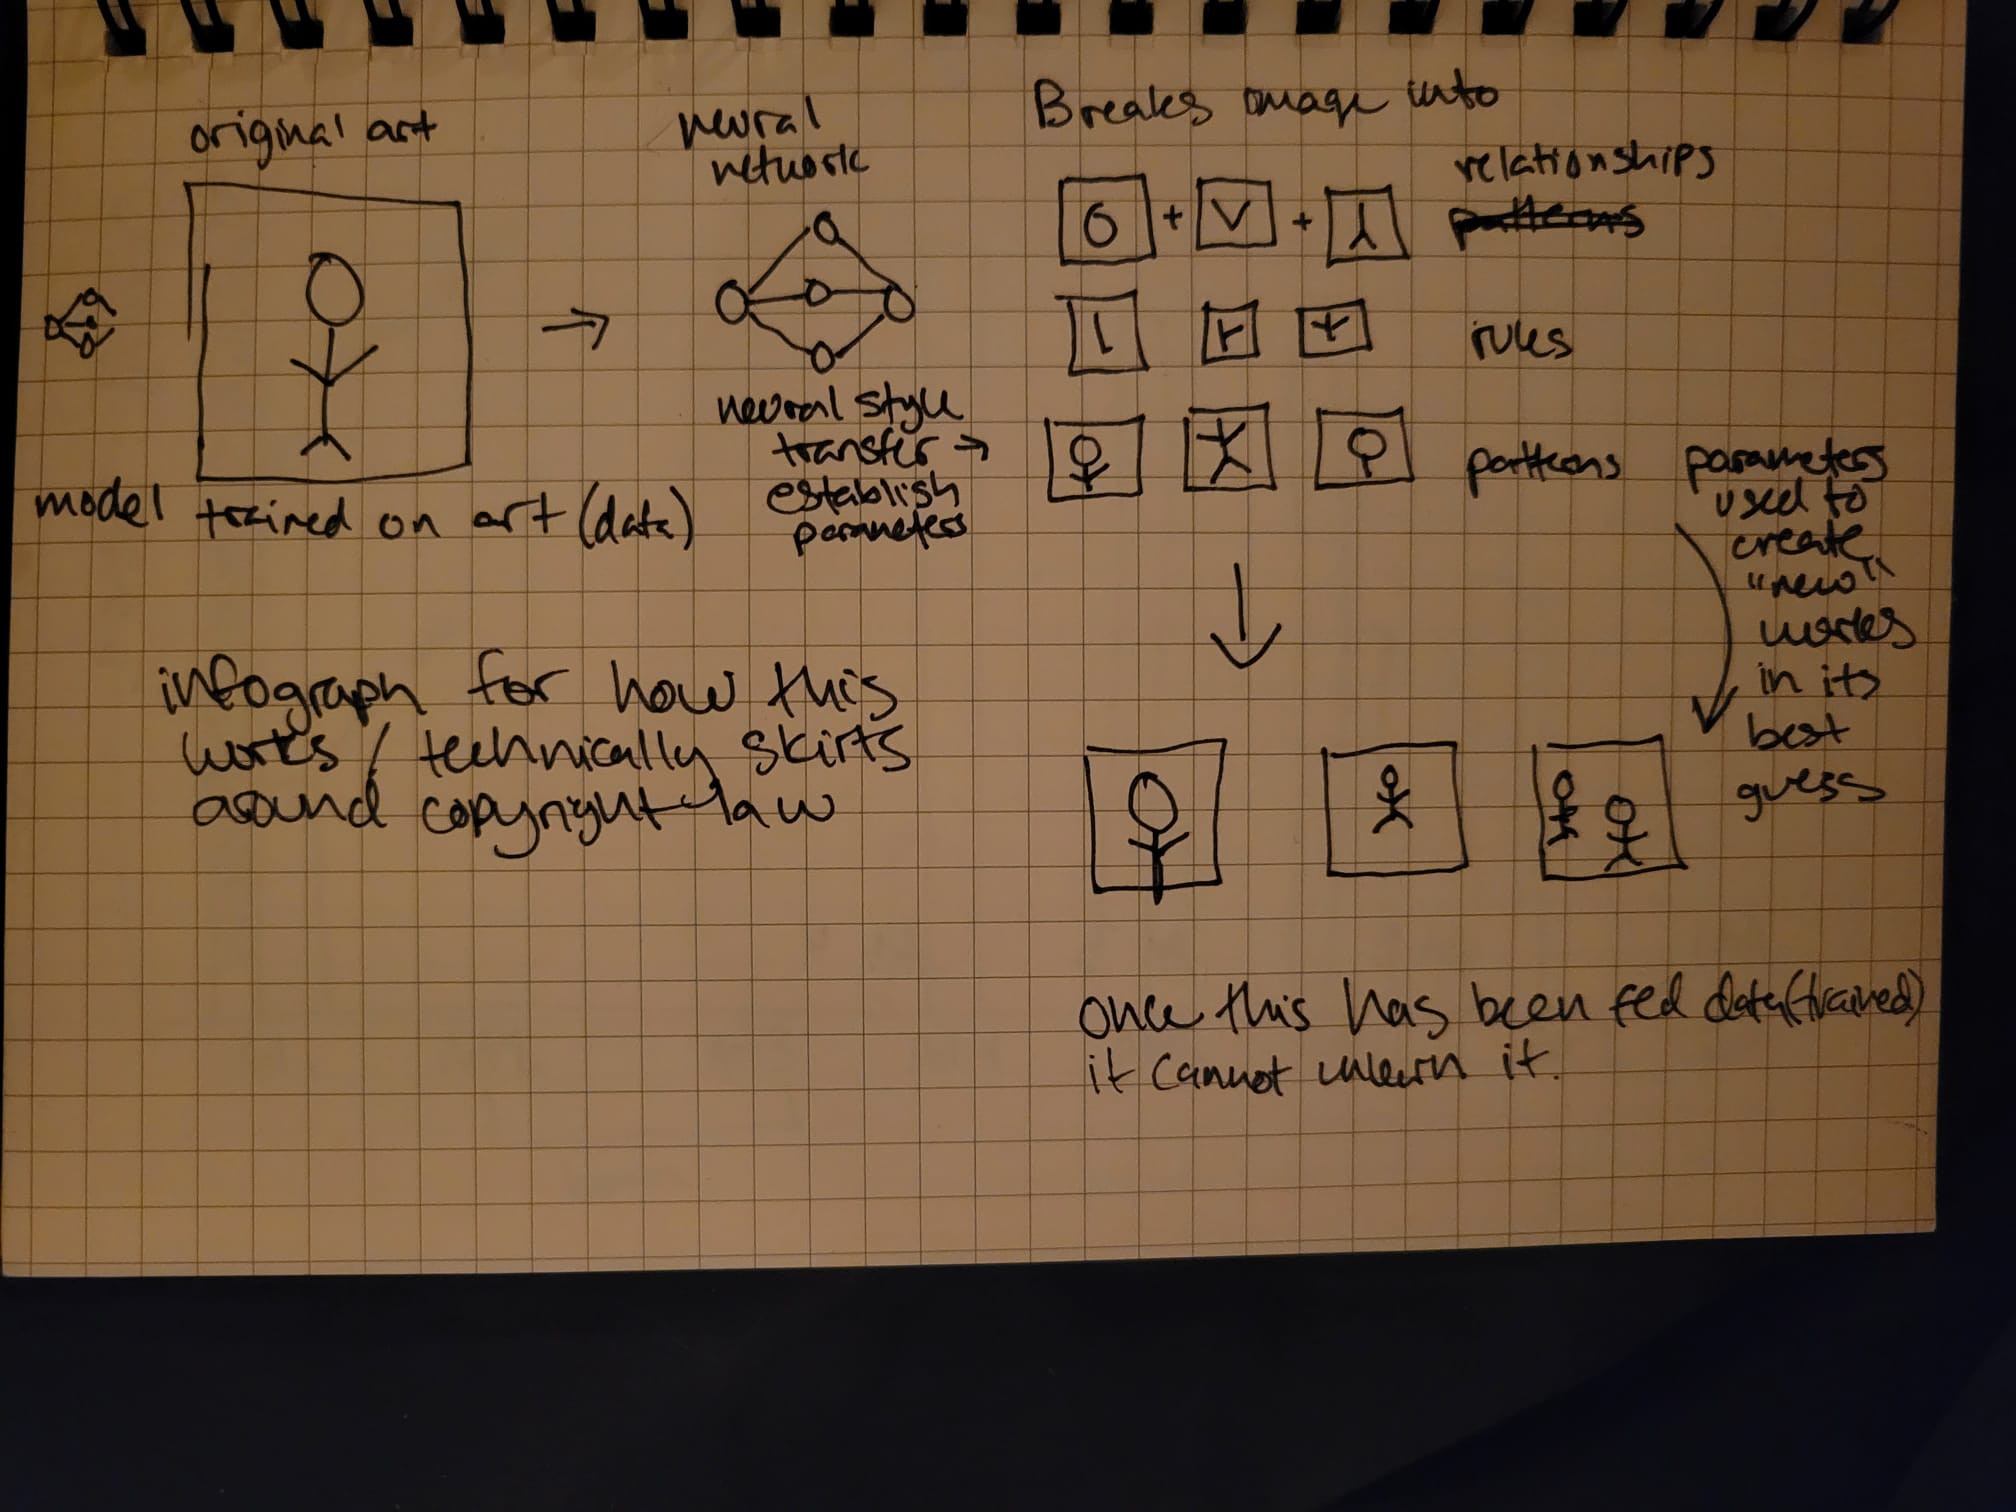 original art
model trained on art (data)
neural
network
neural style
transfer →
establish
parameters
Breaks image into
relationships
patterns
rules
patterns
parameters
used to
create
"new"
works
in its
best
guess
infograph for how this
works / technically skirts
around copyright law
once this has been fed data (trained)
it cannot unlearn it.